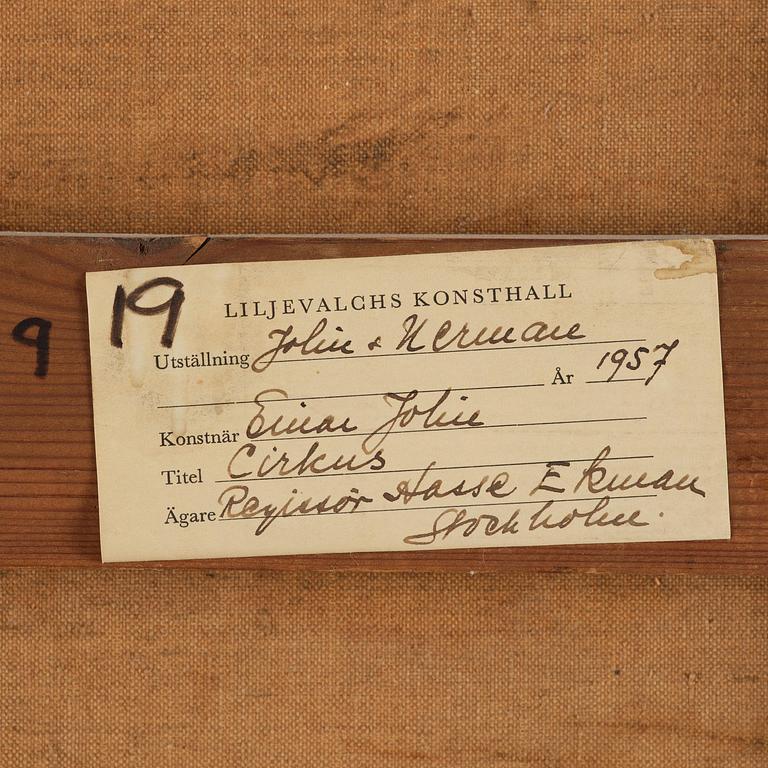 19
LILJEVALCHS KONSTHALL
Utställning John & Nerman
År 1957
Konstnär Einar John
Titel Cirkus
Ägare Regissör Hasse Ekman
Stockholm.
9